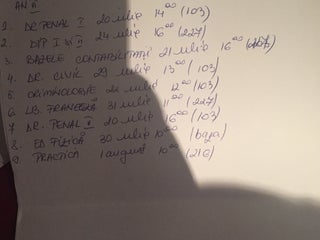 AN II
1. DR PENAL I 20 iulie 14⁰⁰ (103)
2. DIP I și II 24 iulie 16⁰⁰ (227)
3 BAZELE CONTABILITĂȚII 21 iulie 16⁰⁰
4. DR. CIVIL 29 iulie 13⁰⁰ (103)
5 CRIMINOLOGIE 22 iulie 12⁰⁰ (103)
6 LB. FRANCEZĂ 31 iulie 11⁰⁰ (227)
7 DR. PENAL II 20 iulie 16⁰⁰ (103)
8 ED FIZICĂ 30 iulie 10⁰⁰ (baza)
9 PRACTICA 1 august 10⁰⁰ (216)